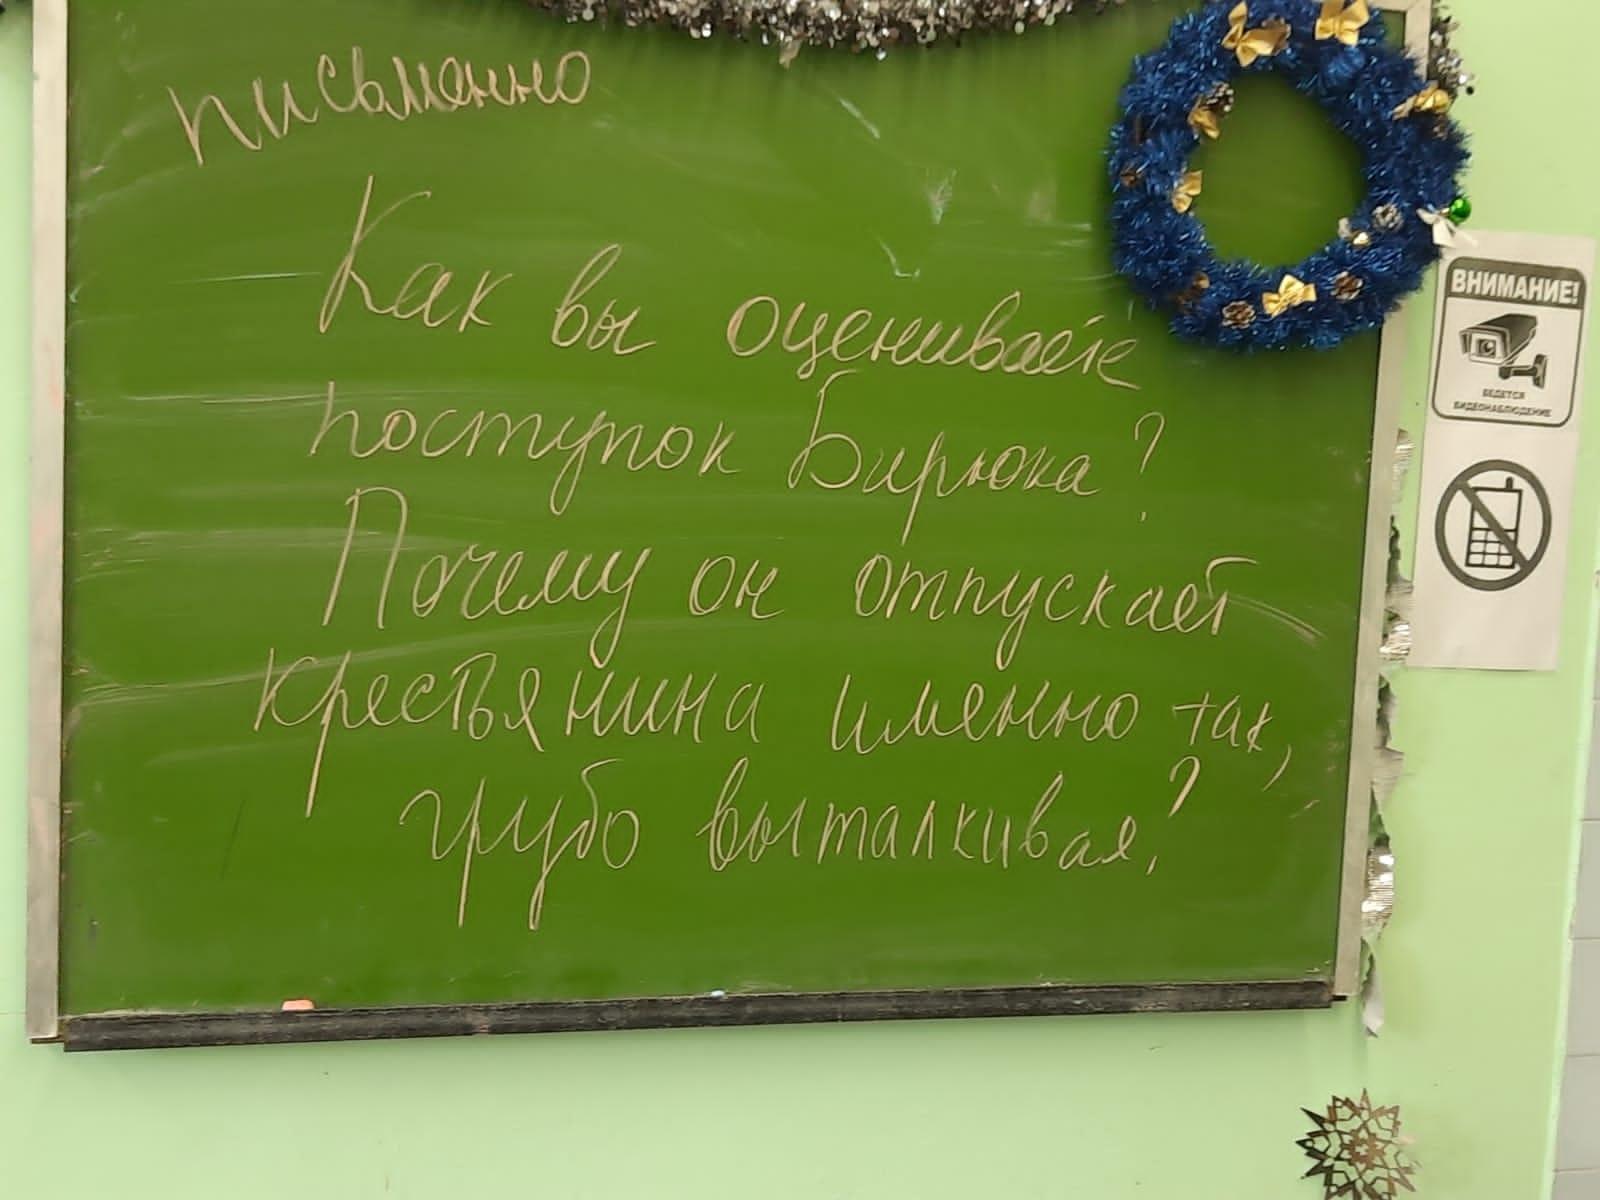 письменно
Как вы оцениваете
поступок Бирюка?
Почему он отпускает
крестьянина именно так,
грубо выталкивая?
ВНИМАНИЕ!
ВЕДЕТСЯ
ВИДЕОНАБЛЮДЕНИЕ